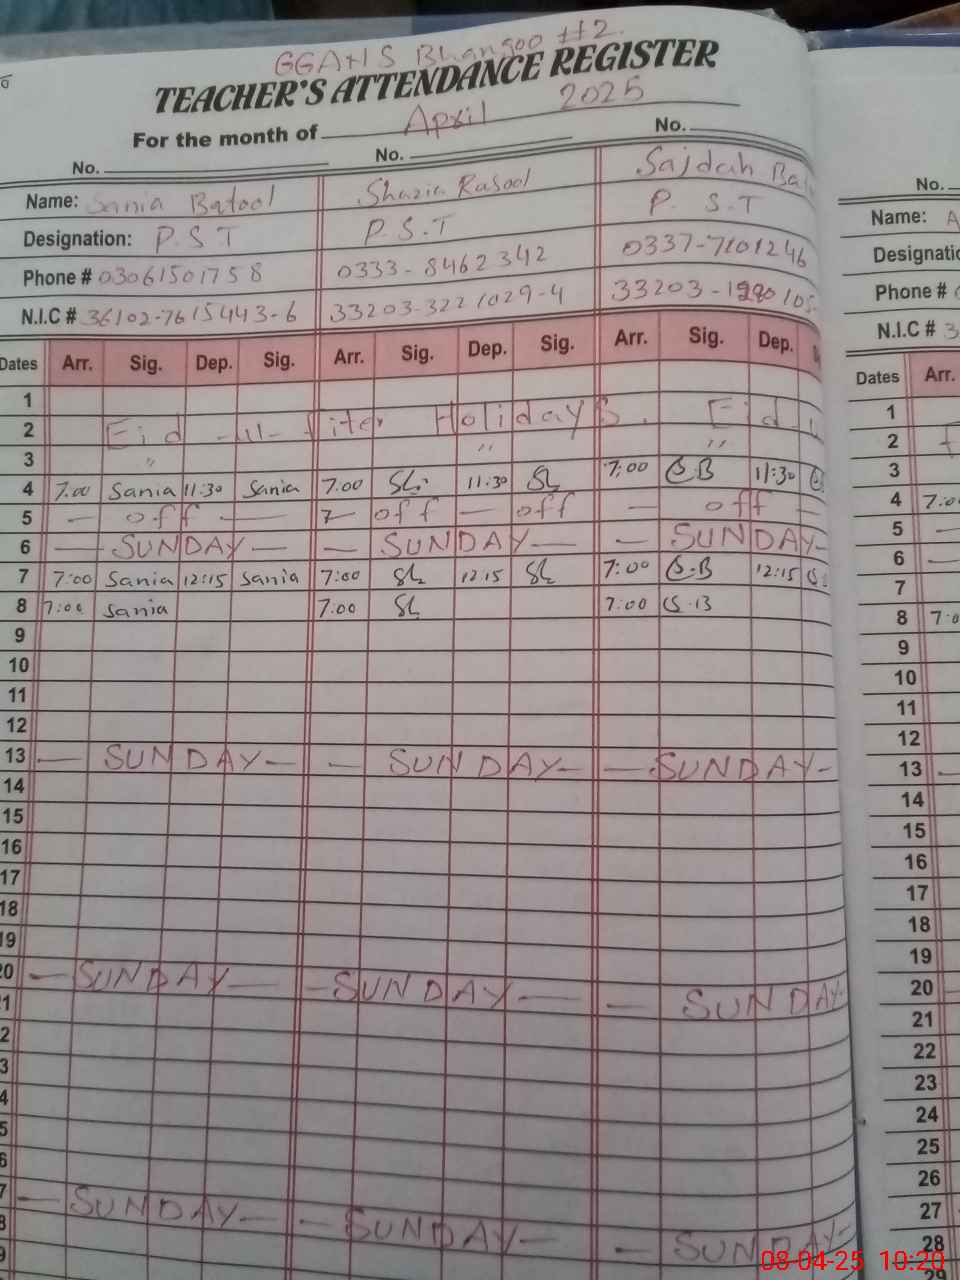 GGAHS Bhangoo #2.
TEACHER'S ATTENDANCE REGISTER
For the month of April 2025
No. No. No.
Name: Sania Batool Shazia Rasool Sajdah
Designation: P.S.T P.S.T P.S.T
Phone # 03061501758 0333-8462342 0337-7101246
N.I.C # 36102-7615443-6 33203-3221029-4
Dates Arr. Sig. Dep. Sig. Arr. Sig. Dep. Sig. Arr. Sig. Dep.
1
2 Eid -ul- Fiter Holidays. Eid
3 " " "
4 7:00 Sania 11:30 Sania 7:00 Sh 11:30 Sh 7:00 S.B 11:30
5 — off — — off — off — off —
6 — SUNDAY — — SUNDAY — — SUNDAY-
7 7:00 Sania 12:15 Sania 7:00 Sh 12:15 Sh 7:00 S.B 12:15
8 7:00 Sania 7:00 Sh 7:00 S.B
9
10
11
12
13 — SUNDAY — — SUNDAY — — SUNDAY-
14
15
16
17
18
19
20 — SUNDAY — — SUNDAY — — SUNDAY-
1
2
3
4
5
6
7 — SUNDAY — — SUNDAY — — SUNDAY-
8
9
No.
Name: A
Designatio
Phone #
N.I.C # 3
Dates Arr.
1
2
3
4 7:0
5 —
6 —
7
8 7:0
9
10
11
12
13 —
14
15
16
17
18
19
20
21
22
23
24
25
26
27
28
29
08-04-25 10:20